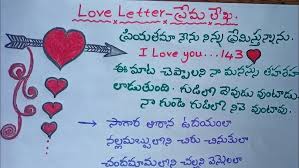 Love Letter-ప్రేమ లేఖ
ప్రియతమా నేను నిన్ను ప్రేమిస్తున్నాను.
I Love you...143
ఈ మాట చెప్పాలని నా మనస్సు తహతహ
లాడుతుంది. గుడిలో దేవుడు వుంటాడు.
నా గుండె గుడిలో నివె వుంటావు.
సాగార తీరాన ఉదయంలా
నల్లమబ్బులోని చిరు చినుకులా
చందమామలోని చల్లని వెన్నెలలా